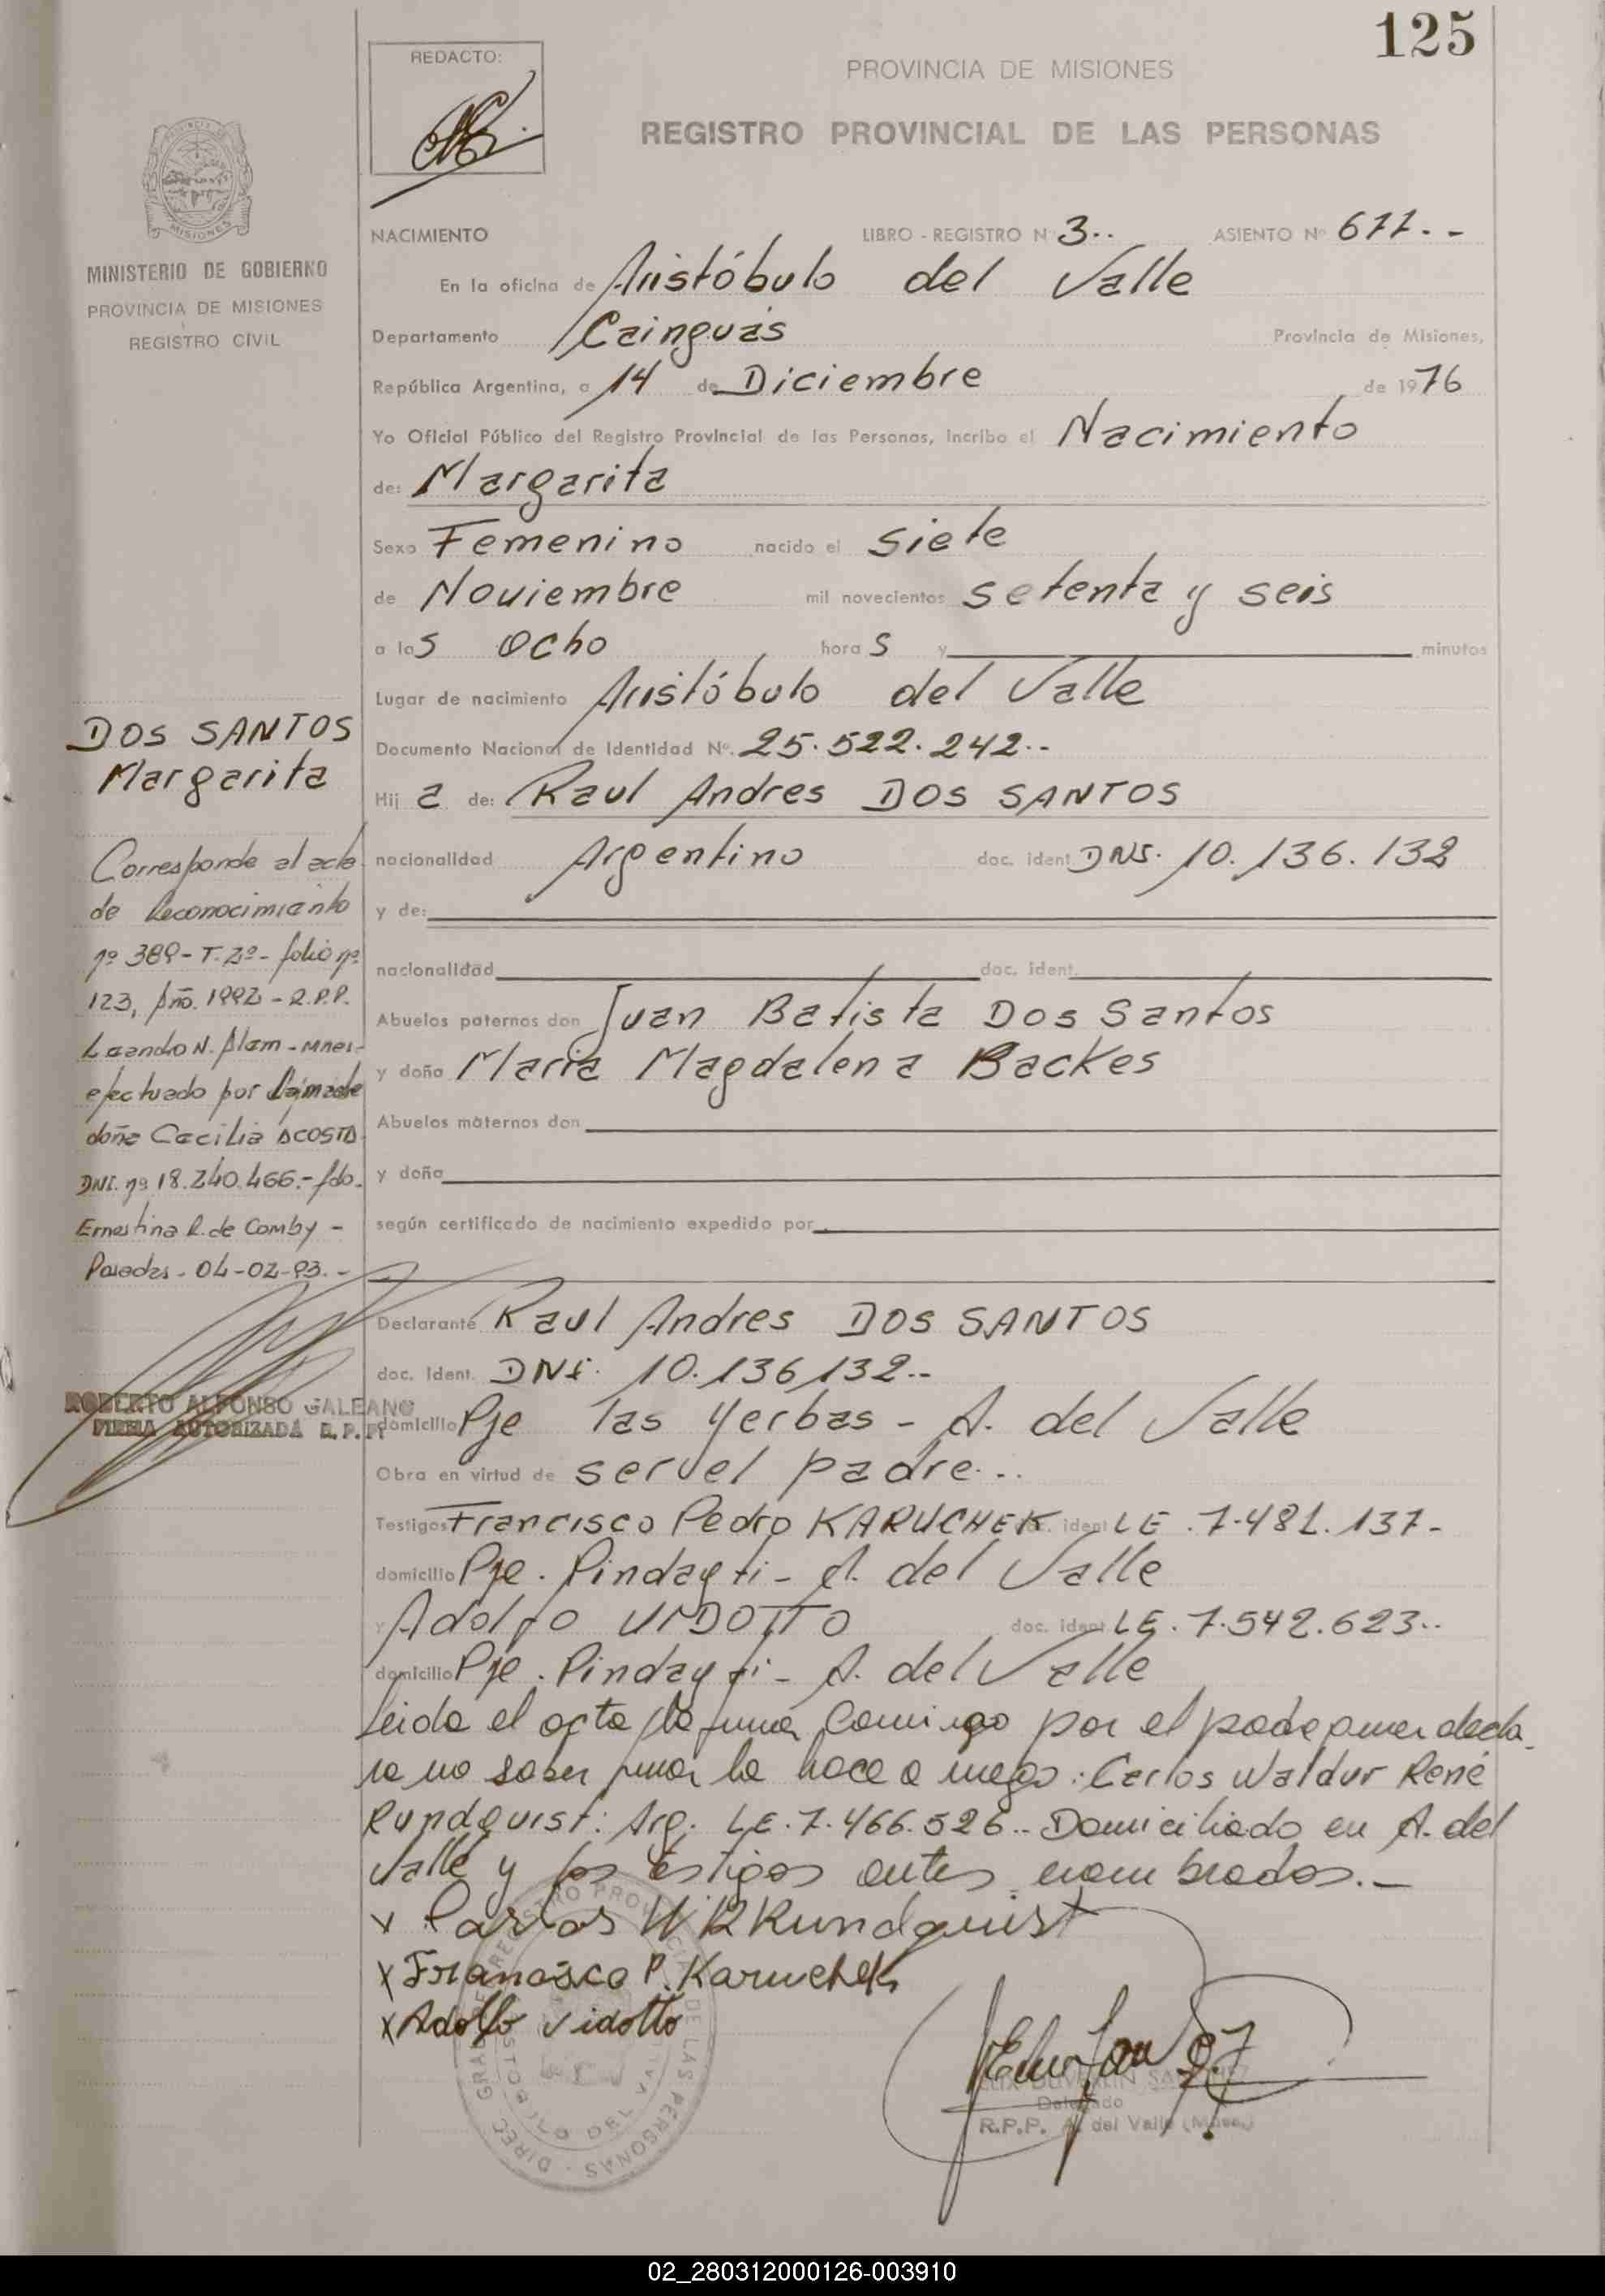 125
REDACTO:
PROVINCIA DE MISIONES
REGISTRO PROVINCIAL DE LAS PERSONAS
MISIONES
MINISTERIO DE GOBIERNO
PROVINCIA DE MISIONES
REGISTRO CIVIL
NACIMIENTO LIBRO - REGISTRO Nº 3.. ASIENTO Nº 611.--
En la oficina de Aristóbulo del Valle
Departamento Cainguás Provincia de Misiones,
República Argentina, a 14 de Diciembre de 1976
Yo Oficial Público del Registro Provincial de las Personas, Incribo el Nacimiento
de: Margarita
Sexo Femenino nacido el siete
de Noviembre mil novecientos setenta y seis
a las ocho horas y minutos
Lugar de nacimiento Aristóbulo del Valle
Documento Nacional de Identidad Nº. 25.522.242..
Hija de: Raul Andres DOS SANTOS
nacionalidad Argentino doc. ident. DNI. 10.136.132
y de:
nacionalidad doc. ident.
Abuelos paternos don Juan Batista Dos Santos
y doña Maria Magdalena Backes
Abuelos maternos don
y doña
según certificado de nacimiento expedido por
DOS SANTOS
Margarita
Corresponde al acta
de Reconocimiento
nº 389 - T. 2º - folio nº
123, Año. 1992 - R.P.P.
Leandro N. Alem - Mnes-
efectuado por
doña Cecilia ACOSTA
DNI. nº 18.240.466.- fdo.
Ernestina R. de Comby -
Posadas - 04-02-93.-
ROBERTO ALFONSO GALEANO
FIRMA AUTORIZADA R.P.P.
Declarante Raul Andres DOS SANTOS
doc. ident. DNI. 10.136,132..
domicilio Pje las Yerbas - A. del Valle
Obra en virtud de ser el padre...
Testigos Francisco Pedro KARUCHEK doc. ident LE. 7.481.137-
domicilio Pje. Pindayti - A. del Valle
y Adolfo VIDOTTO doc. ident LE. 7.542.623..
domicilio Pje. Pindayti - A. del Valle
Leida el acta la firma conmigo por el padre quien decla_
ra no saber firmar lo hace a ruego: Carlos Waldur René
Rundquist: Arg. LE. 7.466.526.. Domiciliado en A. del
Valle y los testigos antes nombrados.-
x Carlos W R Rundquist
x Francisco P. Karuchek
x Adolfo Vidotto
DIREC GRAL DE REGISTRO PROVINCIAL DE LAS PERSONAS
Delegado
R.P.P. A. del Valle (Mnes.)
02_280312000126-003910